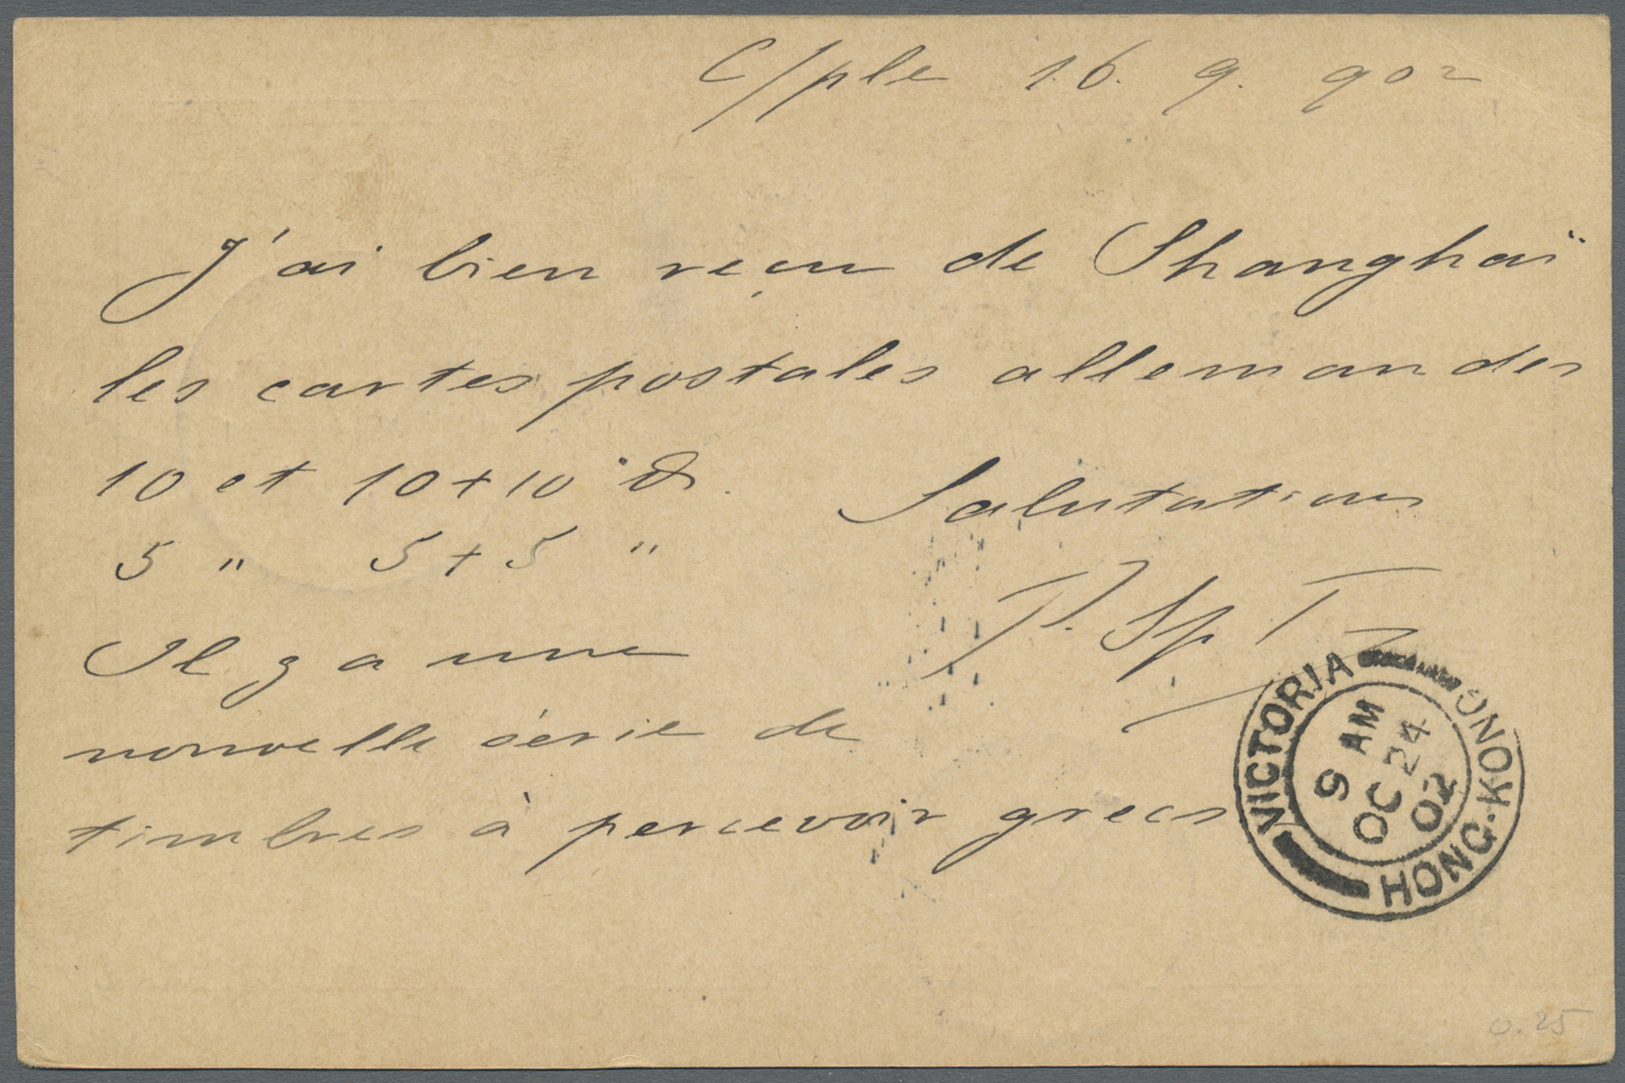 C/ple 16. 9. 902
J'ai bien reçu de Shanghaï
les cartes postales allemandes
10 et 10+10
5 " 5+5 "
Salutations
Il y a une
nouvelle série de
timbres à percevoir grecs
VICTORIA
HONG-KONG
9 AM
OC 24
02
0.25